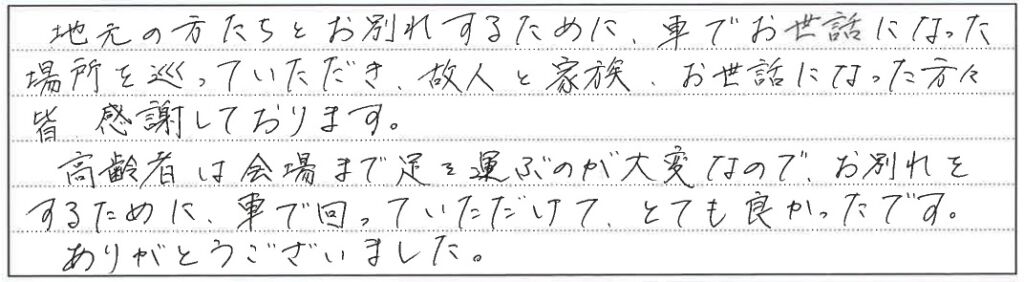 地元の方たちとお別れするために、車でお世話になった
場所を巡っていただき、故人と家族、お世話になった方々
皆、感謝しております。
高齢者は会場まで足を運ぶのが大変なので、お別れを
するために、車で回っていただけて、とても良かったです。
ありがとうございました。